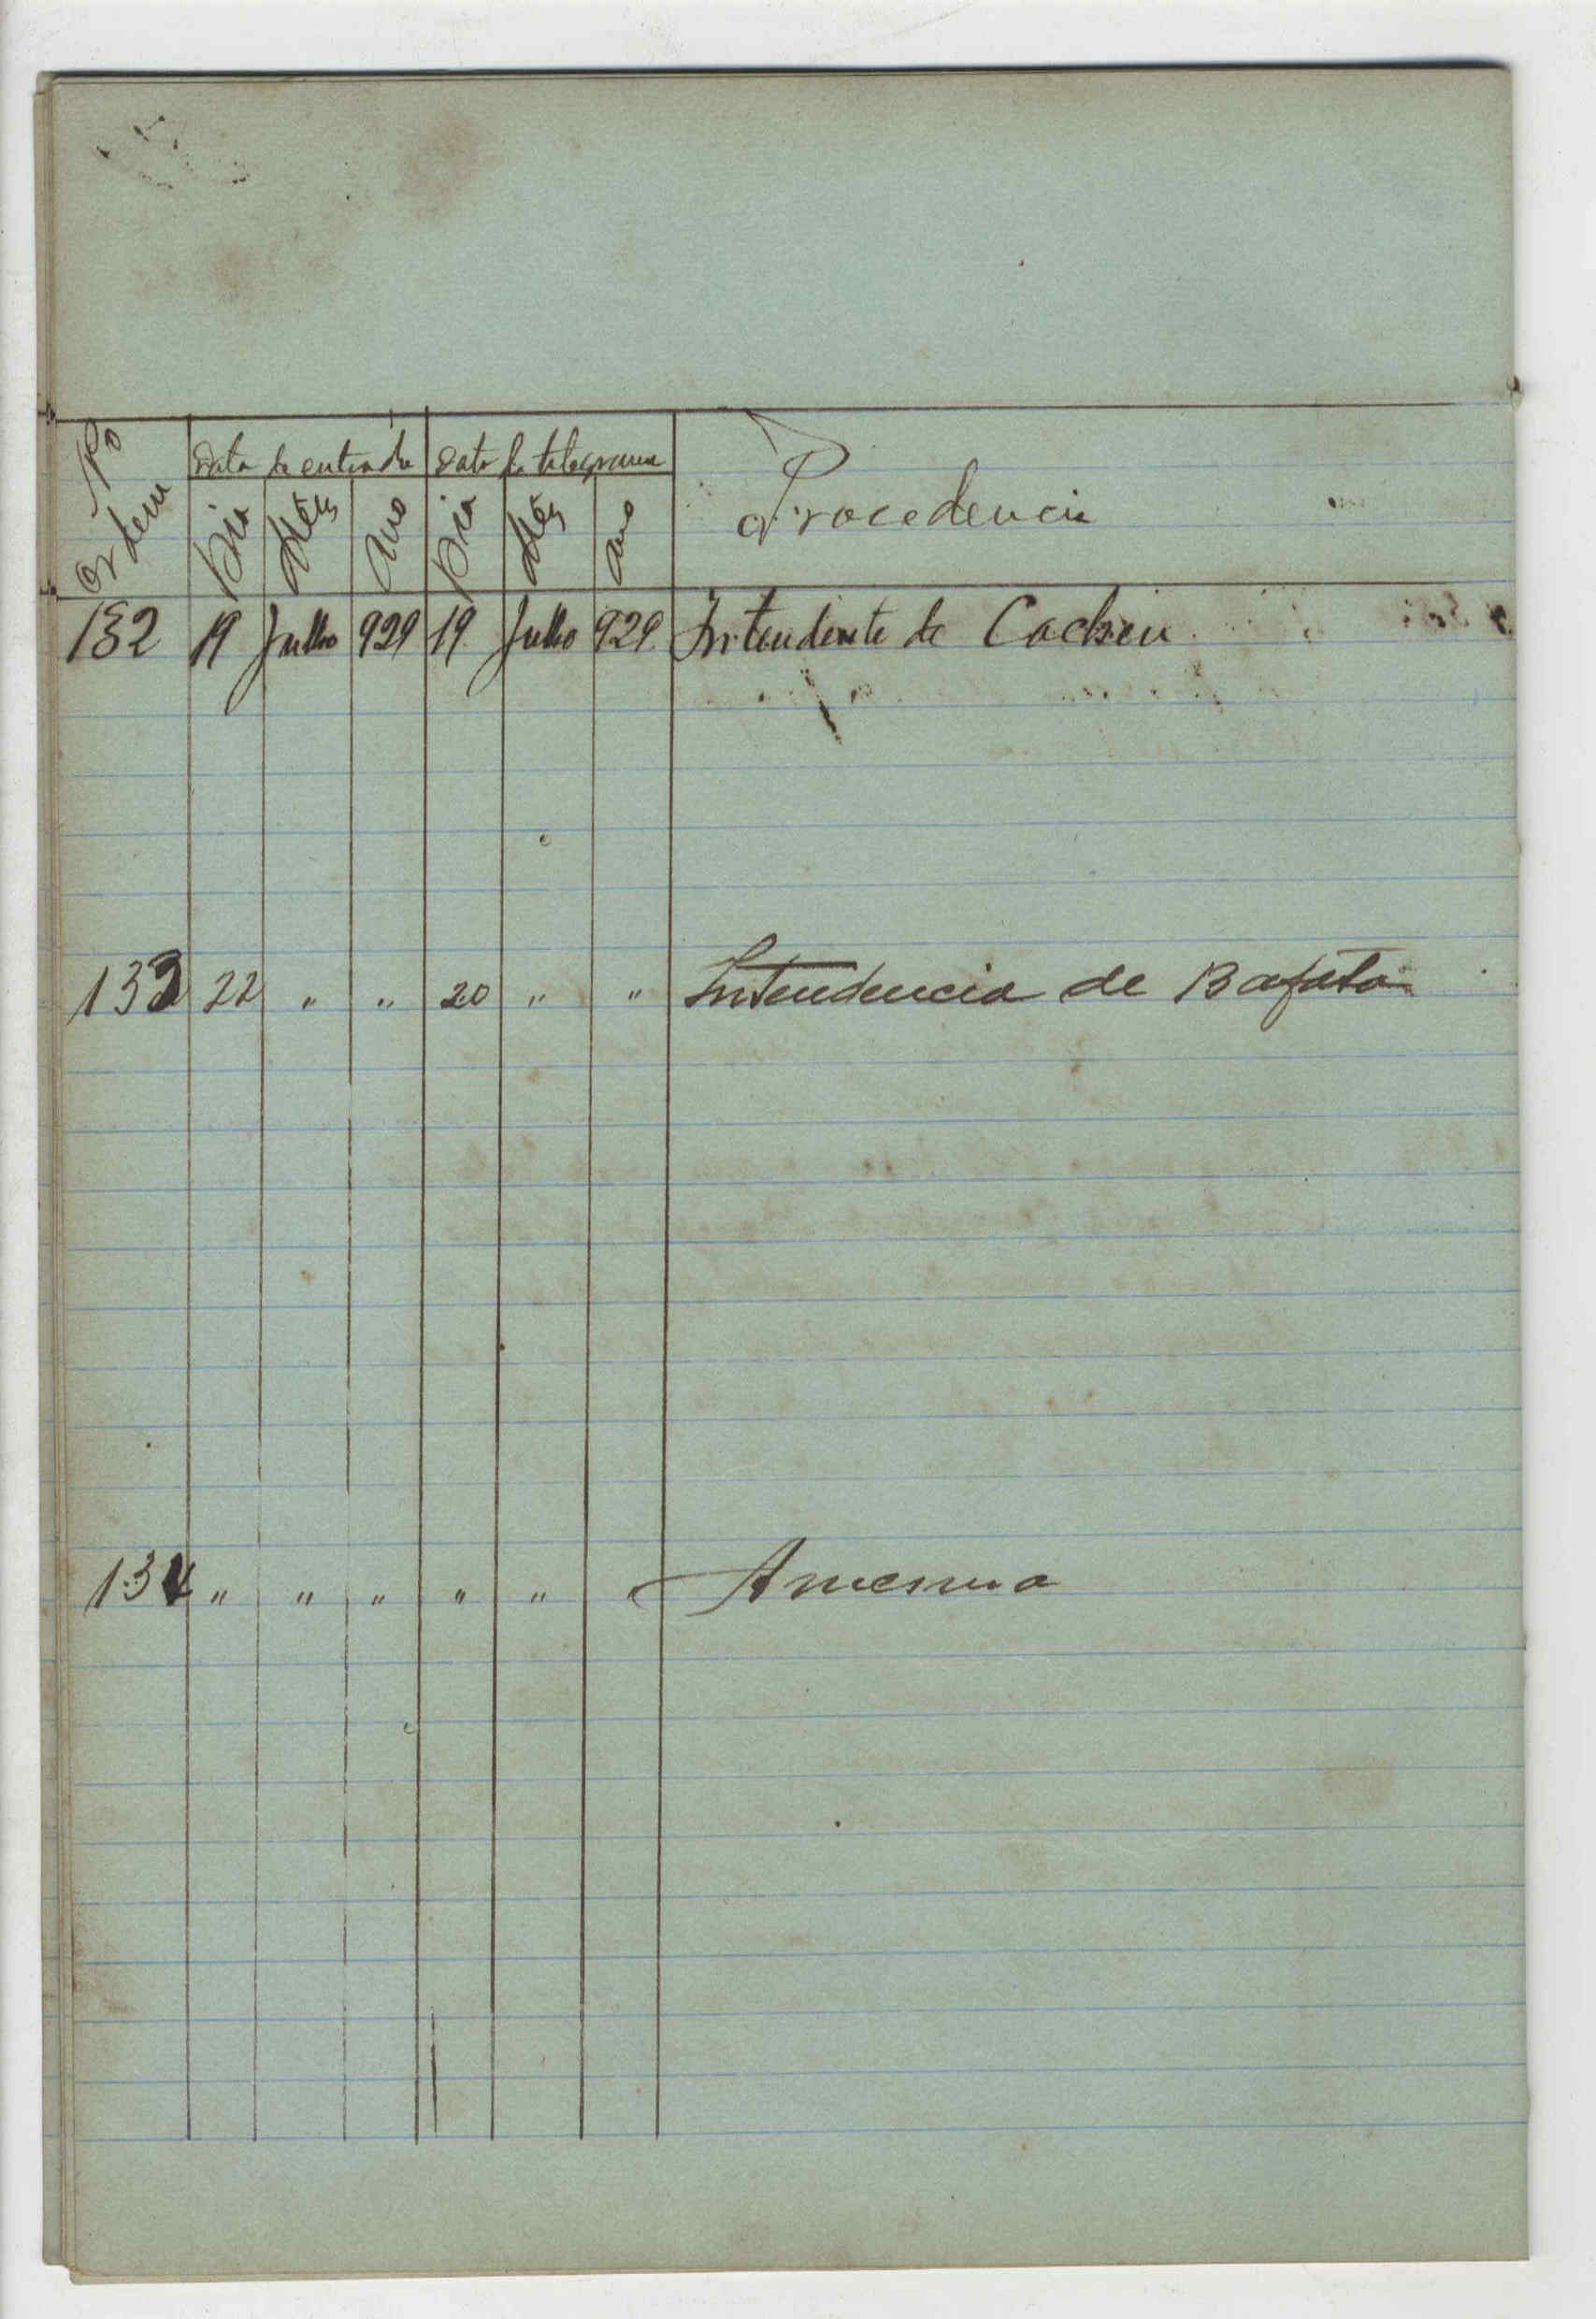 No Ordem
Data da entrada Data do telegrama Procedencia
Dia Mês Ano Dia Mês Ano
132 19 Julho 929 19 Julho 929 Intendente de Cacheu
133 22 " " 20 " " Intendencia de Bafata
134 " " " " " " A mesma